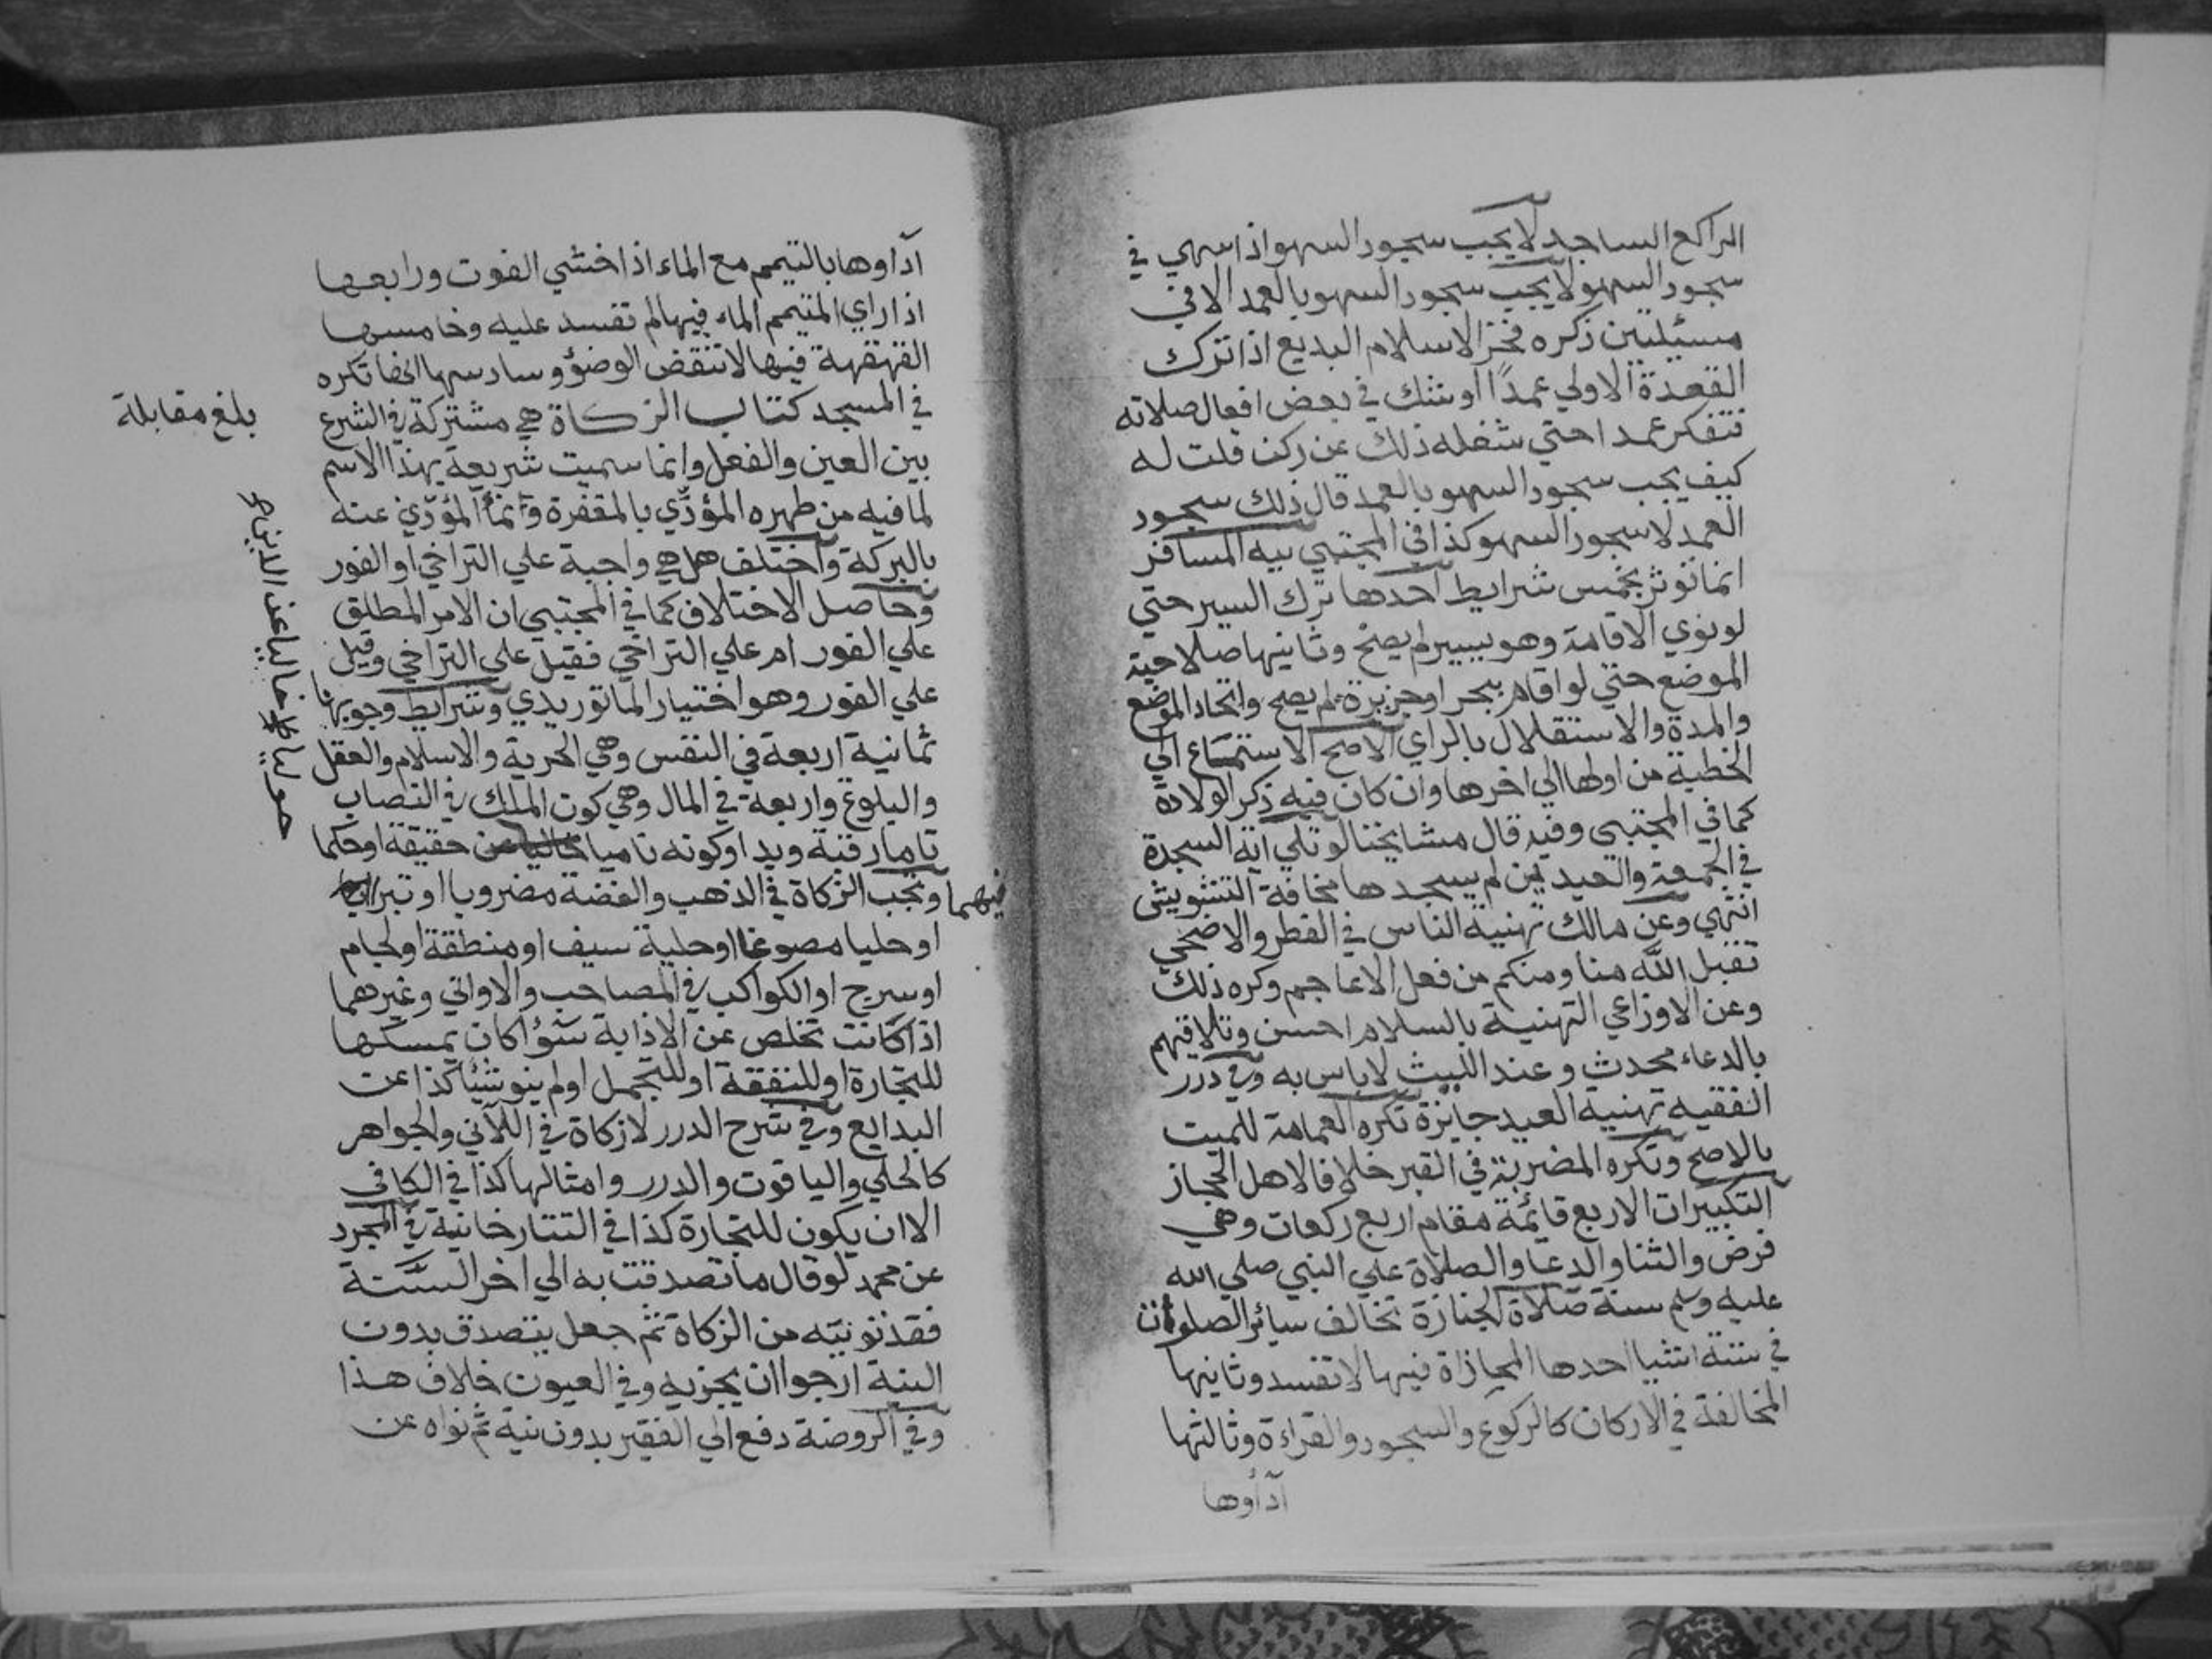 الراكع الساجد لا يجب سجود السهو اذا سهي في
سجود السهو لا يجب سجود السهو بالعمد الا في
مسيلتين ذكره فخر الاسلام البديع اذا ترك
القعدة الاولي عمدًا او شك في بعض افعال صلاته
فتفكر عمدا حتي شغله ذلك عن ركن قلت له
كيف يجب سجود السهو بالعمد قال ذلك سجود
العمد لا سجود السهو كذا في المجتبي نية المسافر
انما توثر بخمس شرايط احدها ترك السير حتي
لو نوي الاقامة وهو يسير لم يصح وثانيها صلاحية
الموضع حتي لو اقام ببحر او جزيرة لم يصح واتحاد الموضع
والمدة والاستقلال بالراي الاصح الاستماع الي
الخطبة من اولها الي اخرها وان كان فيه ذكر الولادة
كما في المجتبي وفيه قال مشايخنا لو تلي اية السجدة
في الجمعة والعيدين لم يسجدها مخافة التشويش
انتهي وعن مالك تهنية الناس في الفطر والاضحي
تقبل الله منا ومنكم من فعل الاعاجم وكره ذلك
وعن الاوزاعي التهنية بالسلام احسن وتلاقيهم
بالدعاء محدث وعند الليث لا باس به وفي درر
الفقيه تهنية العيد جايزة تكره العمامة للميت
بالاصح وتكره المضربة في القبر خلافا لاهل الحجاز
التكبيرات الاربع قائمة مقام اربع ركعات وهي
فرض والثنا والدعا والصلاة علي النبي صلي الله
عليه وسلم سنة صلاة الجنازة تخالف سائر الصلوات
في ستة اشيا احدها المحاذاة فيها لا تفسد وثانيها
المخالفة في الاركان كالركوع والسجود والقراءة وثالثها
آدأوها
آداوها بالتيمم مع الماء اذا خشي الفوت ورابعها
اذا راي المتيمم الماء فيها لم تفسد عليه وخامسها
القهقهة فيها لا تنقض الوضؤ وسادسها انها تكره
في المسجد كتاب الزكاة هي مشتركة في الشرع
بين العين والفعل وانما سميت شريعة بهذا الاسم
لما فيه من طهره المؤدِّي بالمغفرة وانمأ المؤدّي عنه
بالبركة واختلف هل هي واجبة علي التراخي او الفور
وحاصل الاختلاف كما في المجتبي ان الامر المطلق
علي الفور ام علي التراخي فقيل علي التراخي وقيل
علي الفور وهو اختيار الماتوريدي وشرايط وجوبها
ثمانية اربعة في النفس وهي الحرية والاسلام والعقل
والبلوغ واربعة في المال وهي كون الملك في النصاب
تاما رقبة ويدا وكونه ناميا حقيقة او حكما
وتجب الزكاة في الذهب والفضة مضروبا او تبرا
او حليا مصوغا او حلية سيف او منطقة او لجام
او سرج او الكواكب في المصاحب والاواني وغيرهما
اذا كانت تخلص عن الاذابة سوأ كان يمسكها
للتجارة او للنفقة او للتجمل او لم ينو شيأ كذا عن
البدايع وفي شرح الدرر لا زكاة في اللآني والجواهر
كالحلي والياقوت والدرر وامثالها كذا في الكافي
الا ان يكون للتجارة كذا في التتارخانية في المجرد
عن محمد لو قال ما تصدقت به الي اخر السَّنة
فقد نويته من الزكاة ثم جعل يتصدق بدون
النية ارجوا ان يجزيه وفي العيون خلاف هذا
وفي الروضة دفع الي الفقير بدون نية ثم نواه عن
فيهما
بلغ مقابلة